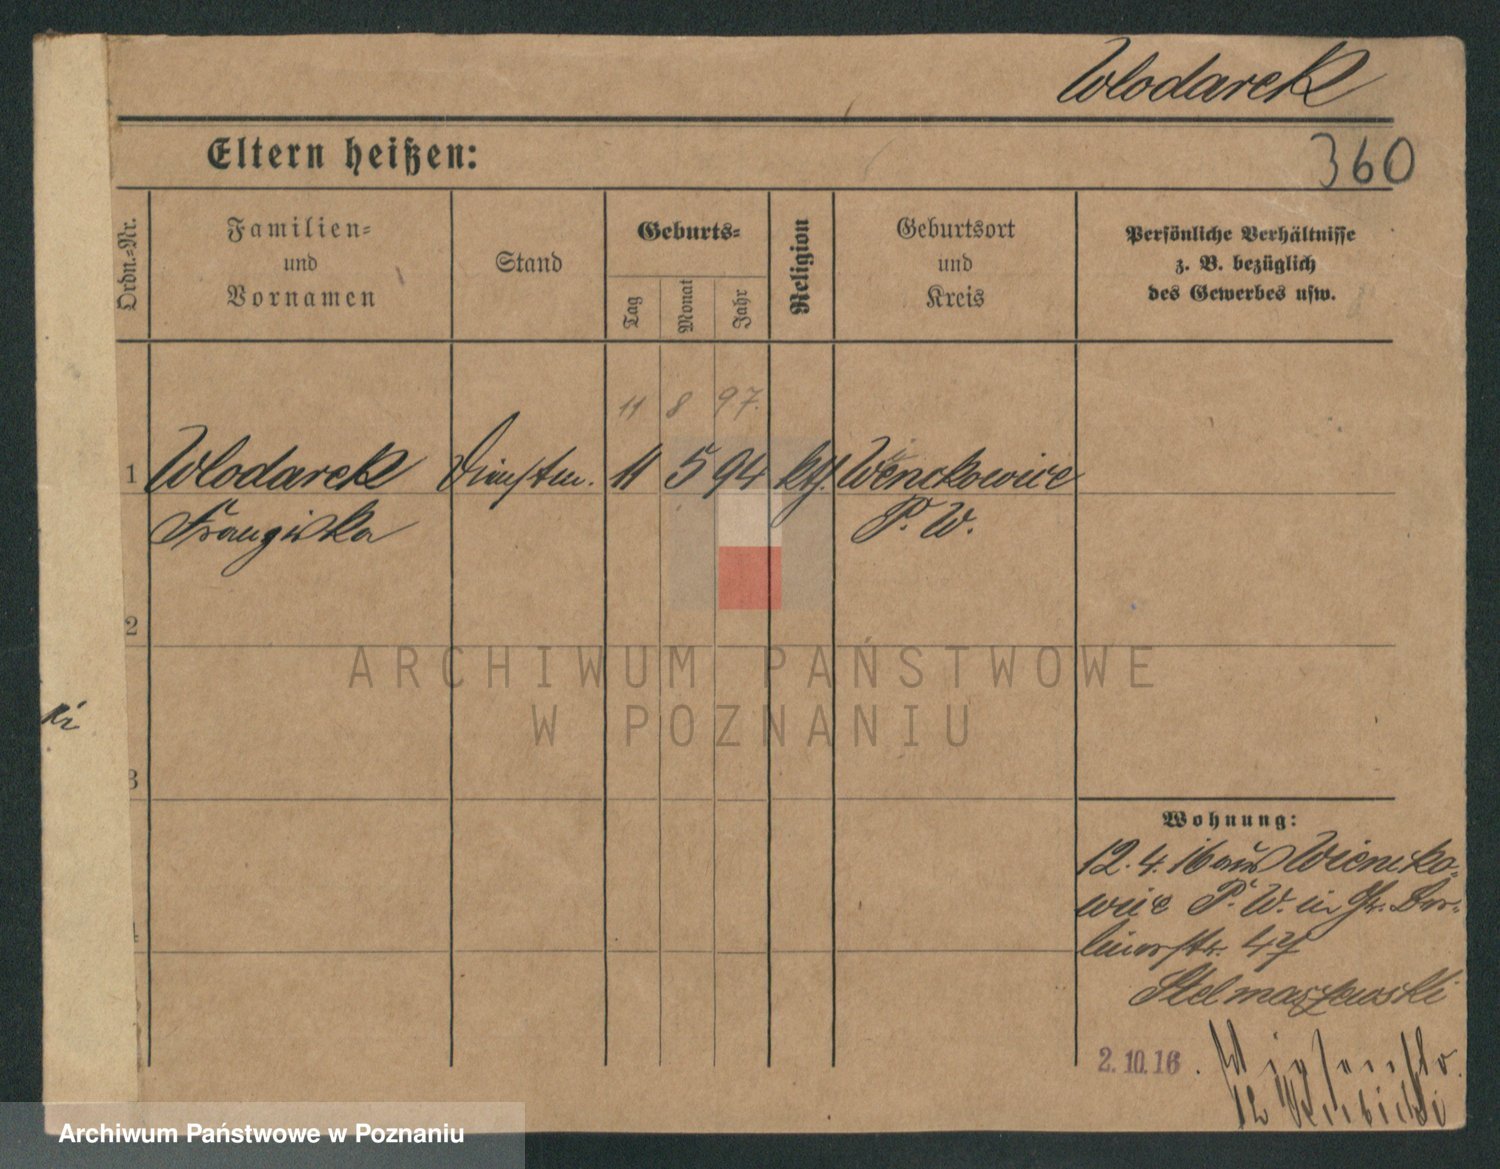 Wlodarek
360
Eltern heißen:
Ordn.-Nr.
Familien-
und
Vornamen
Stand
Geburts-
Tag
Monat
Jahr
Religion
Geburtsort
und
Kreis
Persönliche Verhältnisse
z. B. bezüglich
des Gewerbes usw.
11 8 97.
1 Wlodarek Dienstm. 11 5 94 kth. Wenckowice
Franziska P. W.
2
3
4
ki
ARCHIWUM PAŃSTWOWE
W POZNANIU
Wohnung:
12.4.16 aus Wiencko-
wice P. W. in Gr. Ber-
linerstr. 47
Stelmaszewski
2.10.16.
12
Archiwum Państwowe w Poznaniu